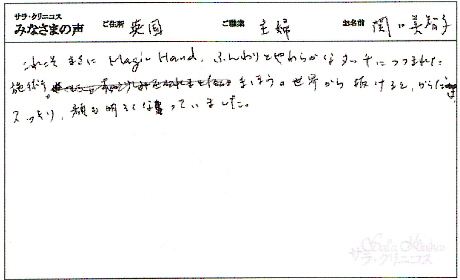 サラ・クリニコス
みなさまの声 ご住所 英国 ご職業 主婦 お名前 関口美智子
これこそ まさに Magic Hand. ふんわりとやわらかなタッチにつつまれた
施術 まほうの世界から 抜けると、からだ
スッキリ、顔も明るくなっていました。
Sala Clinikos
サラ・クリニコス